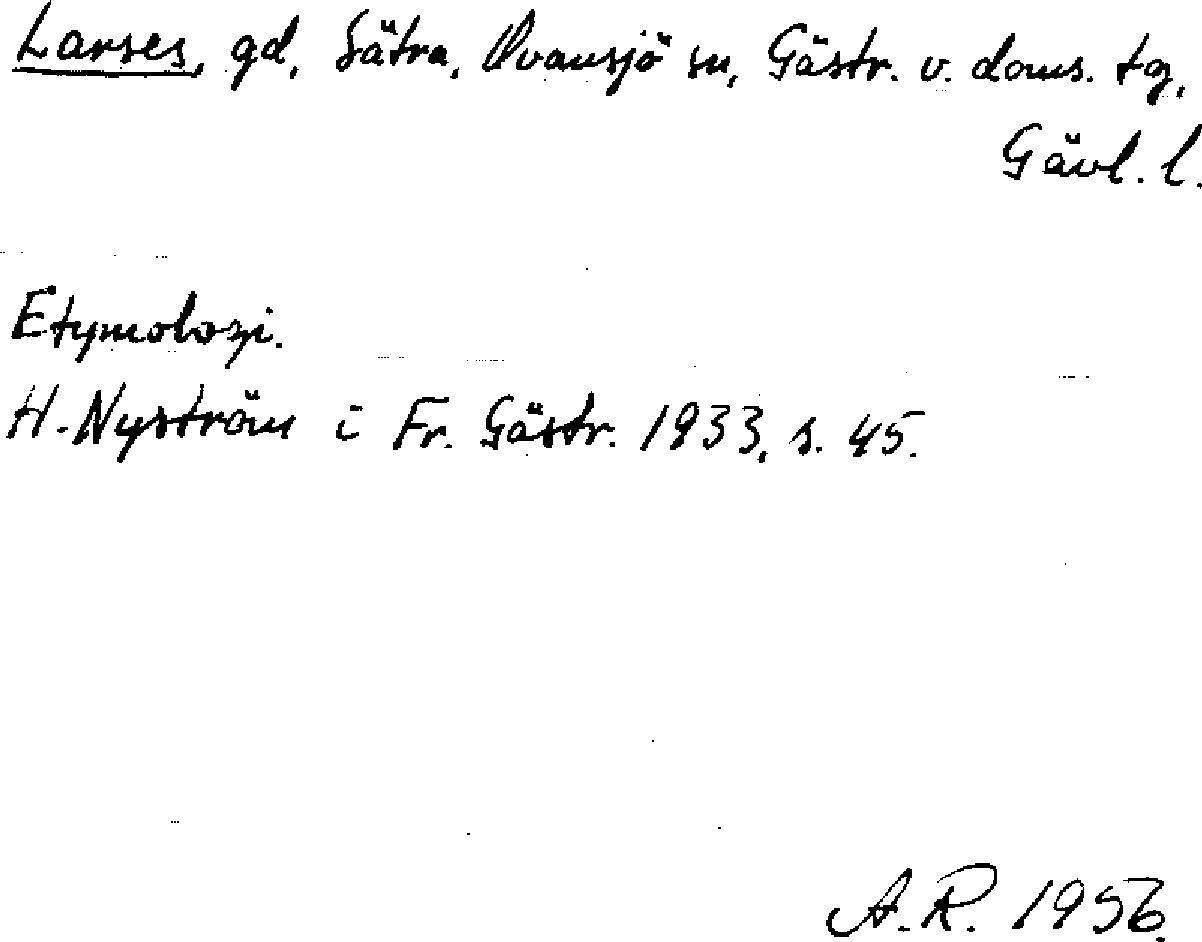 Larses, gd, Sätra, Ovansjö sn, Gästr. v. doms. tg,
Gävl. l.
Etymologi.
H. Nyström i Fr. Gästr. 1933, s. 45.
A.R. 1956.